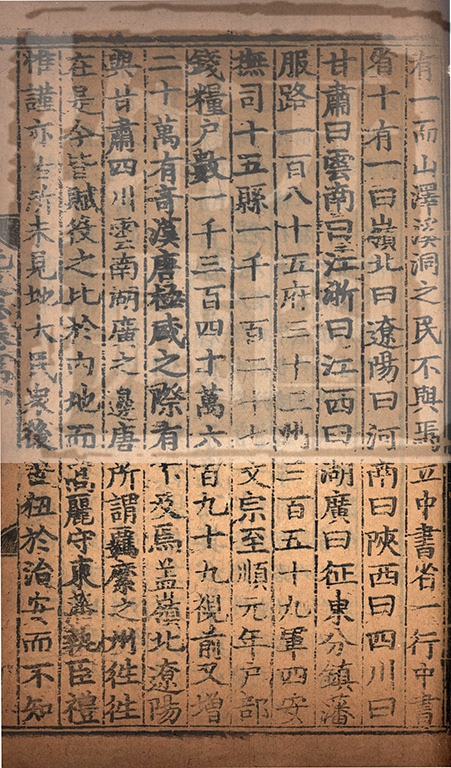 有一而山澤溪洞之民不與焉立中書省一行中書
省十有一曰嶺北曰遼陽曰河南曰陝西曰四川曰
甘肅曰雲南曰江浙曰江西曰湖廣曰征東分鎮藩
服路一百八十五府三十三州三百五十九軍四安
撫司十五縣一千一百二十七文宗至順元年戶部
錢糧戶數一千三百四十萬六百九十九視前又增
二十萬有奇漢唐極盛之際有不及焉盖嶺北遼陽
與甘肅四川雲南湖廣之邊唐所謂羈縻之州徃徃
在是今皆賦役之比於內地而高麗守東藩執臣禮
惟謹亦古所未見地大民衆後世狃於治安而不知